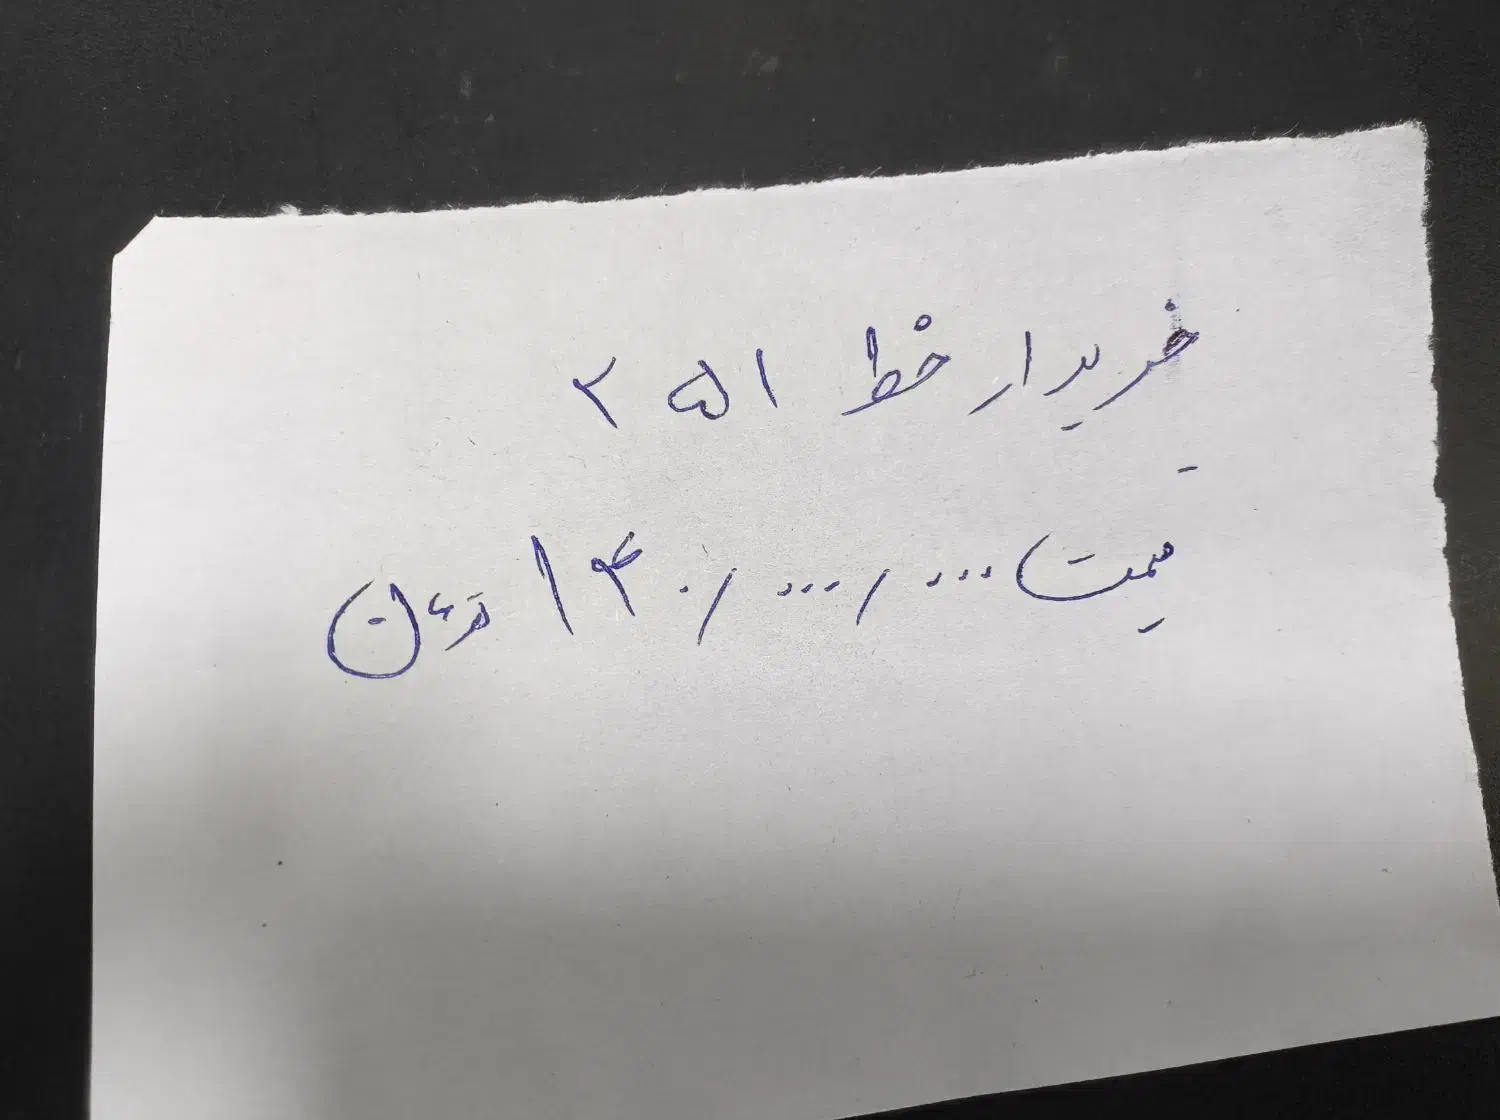 خریدار خط ۲۵۱
قیمت ۱۴۰/۰۰۰/۰۰۰ تومان